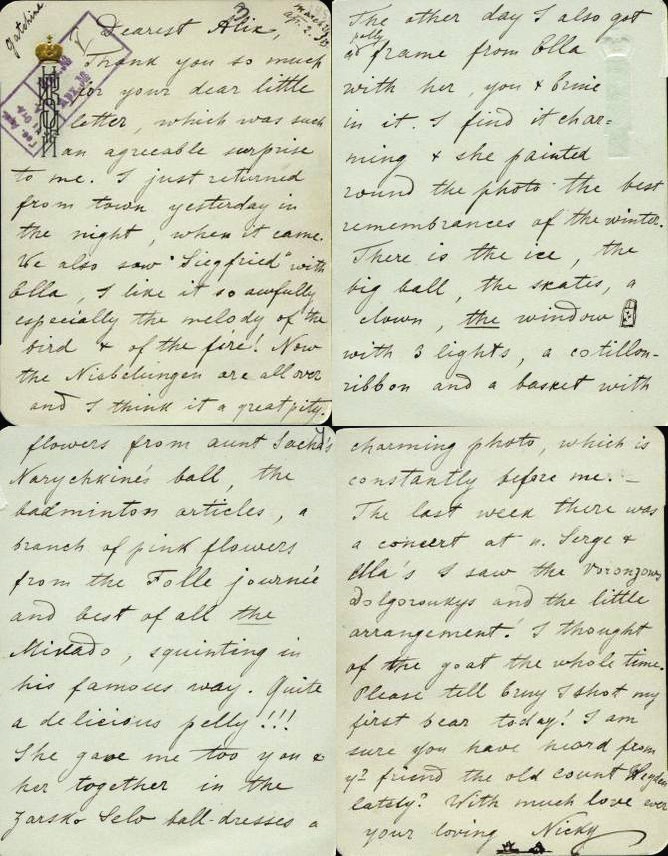 Gatchina
3
Dearest Alix,
Thank you so much
for your dear little
letter, which was such
an agreeable surprise
to me. I just returned
from town yesterday in
the night, when it came.
We also saw "Siegfried" with
Ella, I like it so awfully
especially the melody of the
bird & of the fire! Now
the Niebelungen are all over
and I think it a great pity.
The other day I also got
a pelly frame from Ella
with her, you & Ernie
in it. I find it char=
ming & she painted
round the photo the best
remembrances of the winter.
There is the ice, the
big ball, the skates, a
clown, the window
with 3 lights, a cotillon-
ribbon and a basket with
flowers from aunt Sacha's
Narychkine's ball, the
badminton articles, a
branch of pink flowers
from the Folle journée
and best of all the
Mikado, squinting in
his famous way. Quite
a delicious pelly!!!
She gave me too you &
her together in the
Zarsko Selo ball-dresses a
charming photo, which is
constantly before me. –
The last week there was
a concert at u. Serge &
Ella's I saw the Voronzows,
Dolgoroukys and the little
arrangement! I thought
of the goat the whole time.
Please tell Erny I shot my
first bear today! I am
sure you have heard from
yr friend the old count Heyden
lately? With much love ever
your loving Nicky